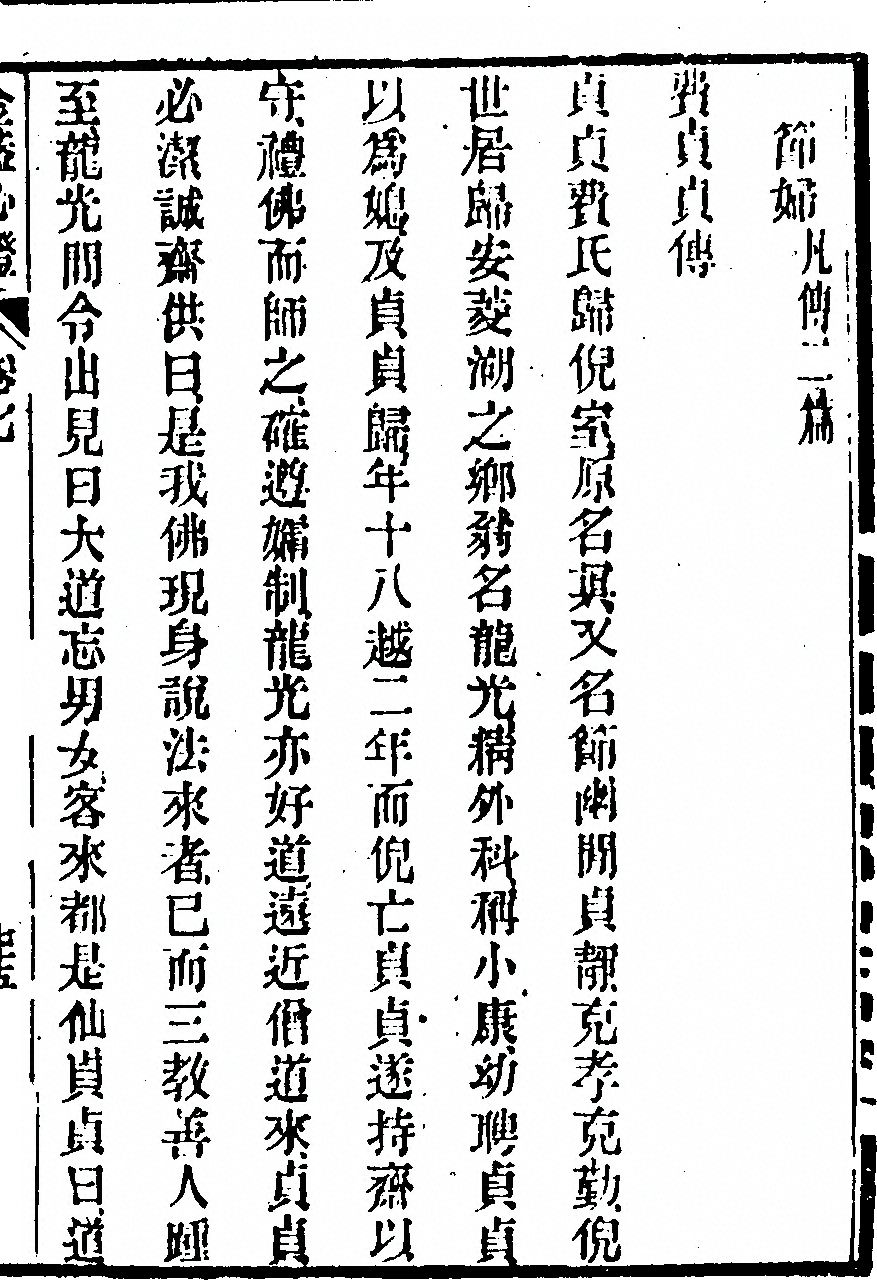 節婦凡傳二條
費貞貞傳
貞貞費氏歸倪室原名琪又名節幽閒貞靜克孝克勤倪
世居歸安菱湖之鄉翁名龍光精外科稱小康幼聘貞貞
以爲媳及貞貞歸年十八越二年而倪亡貞貞遂持齋以
守禮佛而師之確遵孀制龍光亦好道遠近僧道來貞貞
必潔誠齋供曰是我佛現身說法來者已而三教善人踵
至龍光間令出見曰大道忘男女客來都是仙貞貞曰道
金蓋心燈 卷七